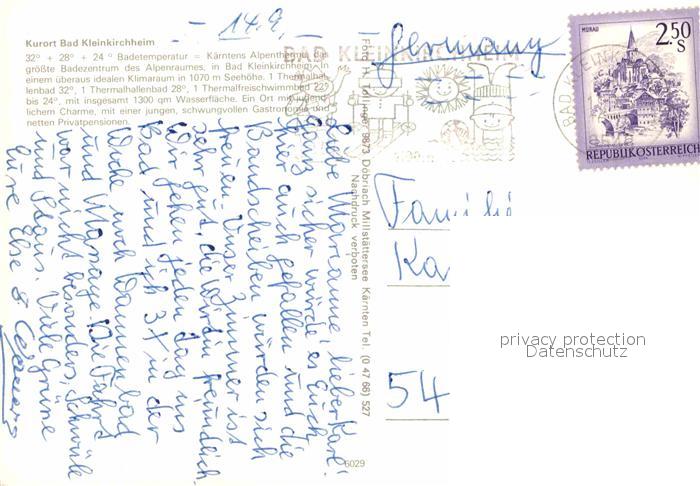 - 14.9. -
Kurort Bad Kleinkirchheim
32° + 28° + 24° Badetemperatur = Kärntens Alpentherme, das
größte Badezentrum des Alpenraumes, in Bad Kleinkirchheim, in
einem überaus idealen Klimaraum in 1070 m Seehöhe. 1 Thermalhal-
lenbad 32°, 1 Thermalhallenbad 28°, 1 Thermalfreischwimmbad 22°
bis 24°, mit insgesamt 1300 qm Wasserfläche. Ein Ort mit
lichem Charme, mit einer jungen, schwungvollen Gastronomie und
netten Privatpensionen.
Liebe Marianne, lieber Karl!
Ganz sicher würde es Euch
hier auch gefallen und die
Bandscheiben würden sich
freuen. Unser Zimmer ist
sehr gut, die Wirtin freundlich.
Wir gehen jeden Tag ins
Bad und ich 3 x in der
Woche noch Wannenbad
und Massage. Die Fahrt
war nicht besonders, Schwüle
und Staus. Viele Grüße
Eure Else &
Foto H. 9873 Döbriach Millstättersee Kärnten Tel. (0 47 66) 527
Nachdruck verboten
6029
BAD KLEINKIRCHHEIM
Germany
MURAU
2.50
S
REPUBLIK ÖSTERREICH
BAD KLEINK
Famili
Ka
54
privacy protection
Datenschutz